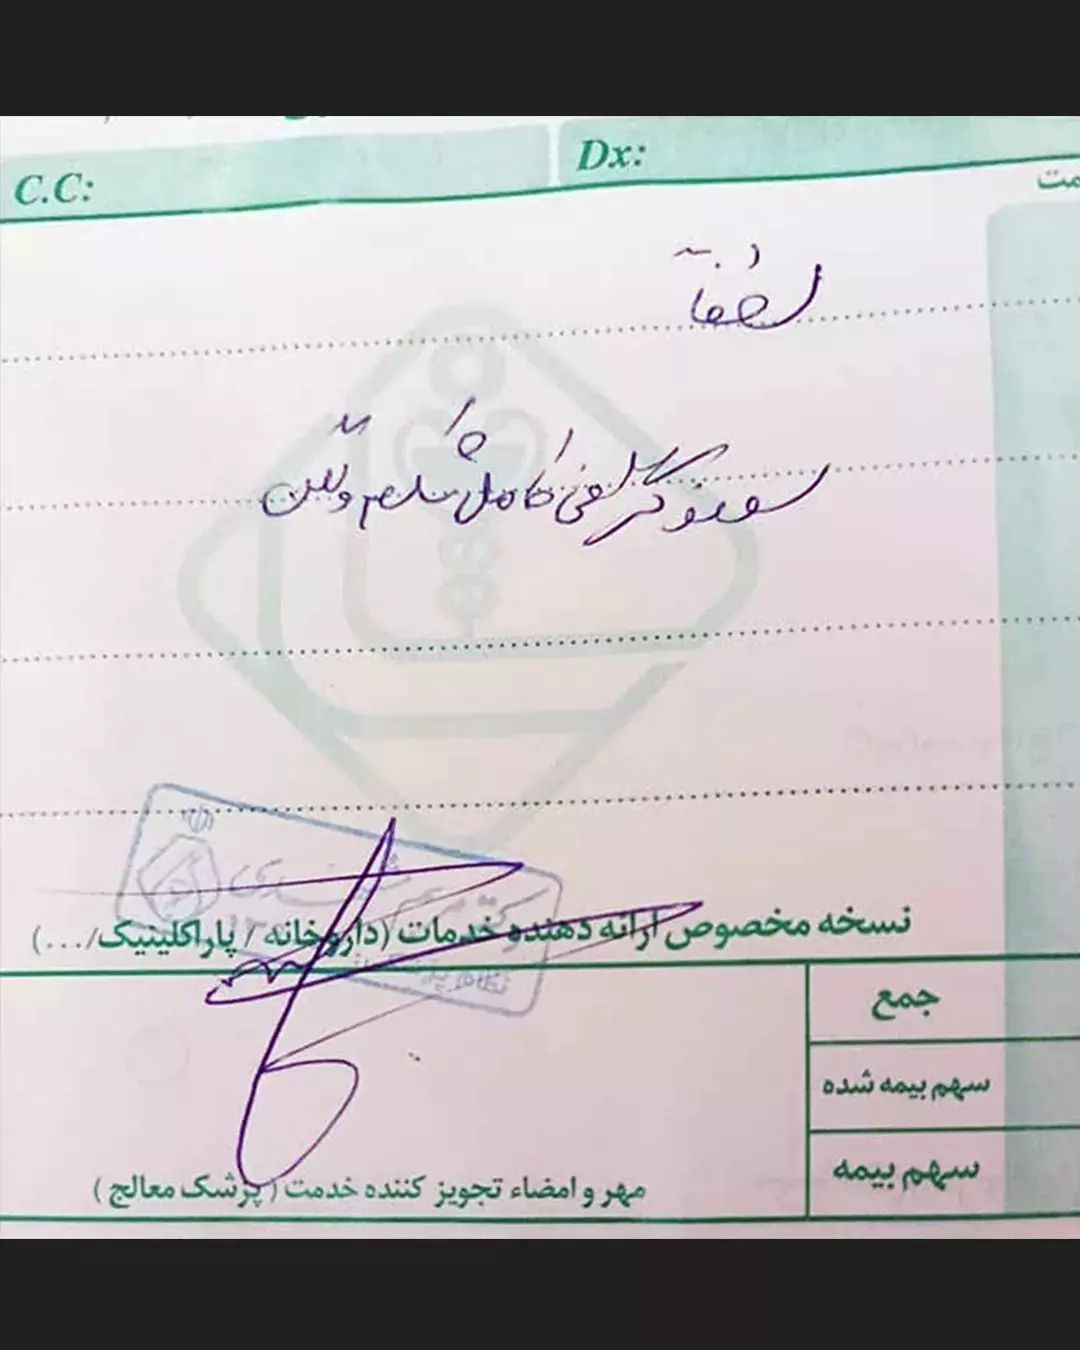 C.C:
Dx:
لطفا
سونوگرافی کامل شکم و لگن
نسخه مخصوص ارائه دهنده خدمات (داروخانه / پاراکلینیک/...)
جمع
سهم بیمه شده
سهم بیمه
مهر و امضاء تجویز کننده خدمت ( پزشک معالج )